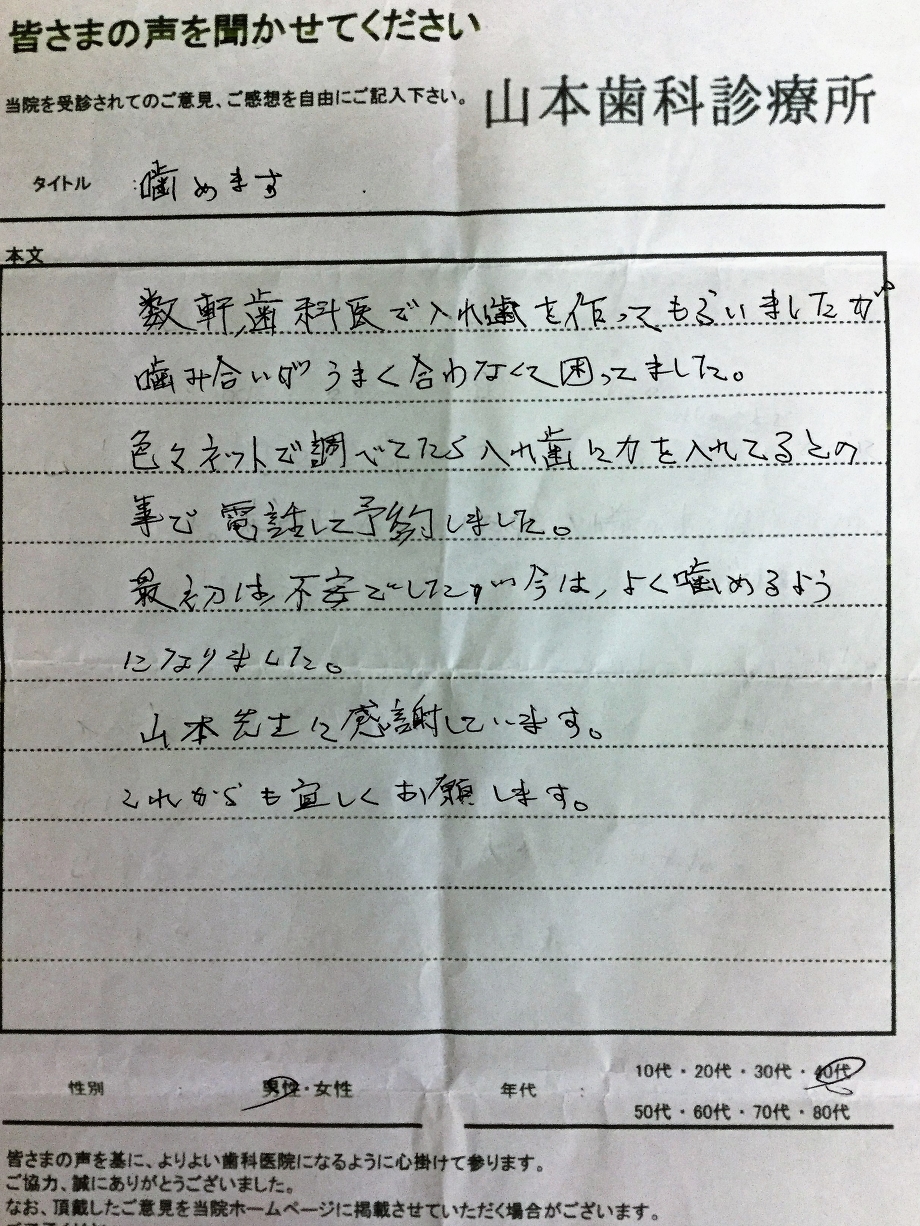 皆さまの声を聞かせてください
当院を受診されてのご意見、ご感想を自由にご記入下さい。
山本歯科診療所
タイトル : 噛めます
本文
数軒、歯科医で入れ歯を作ってもらいましたが
噛み合いがうまく合わなくて困ってました。
色々ネットで調べてたら入れ歯に力を入れてるとの
事で電話して予約しました。
最初は不安でしたが今は、よく噛めるよう
になりました。
山本先生に感謝しています。
これからも宜しくお願します。
性別 : 男性・女性
年代 10代・20代・30代・40代
50代・60代・70代・80代
皆さまの声を基に、よりよい歯科医院になるように心掛けて参ります。
ご協力、誠にありがとうございました。
なお、頂戴したご意見を当院ホームページに掲載させていただく場合がございます。